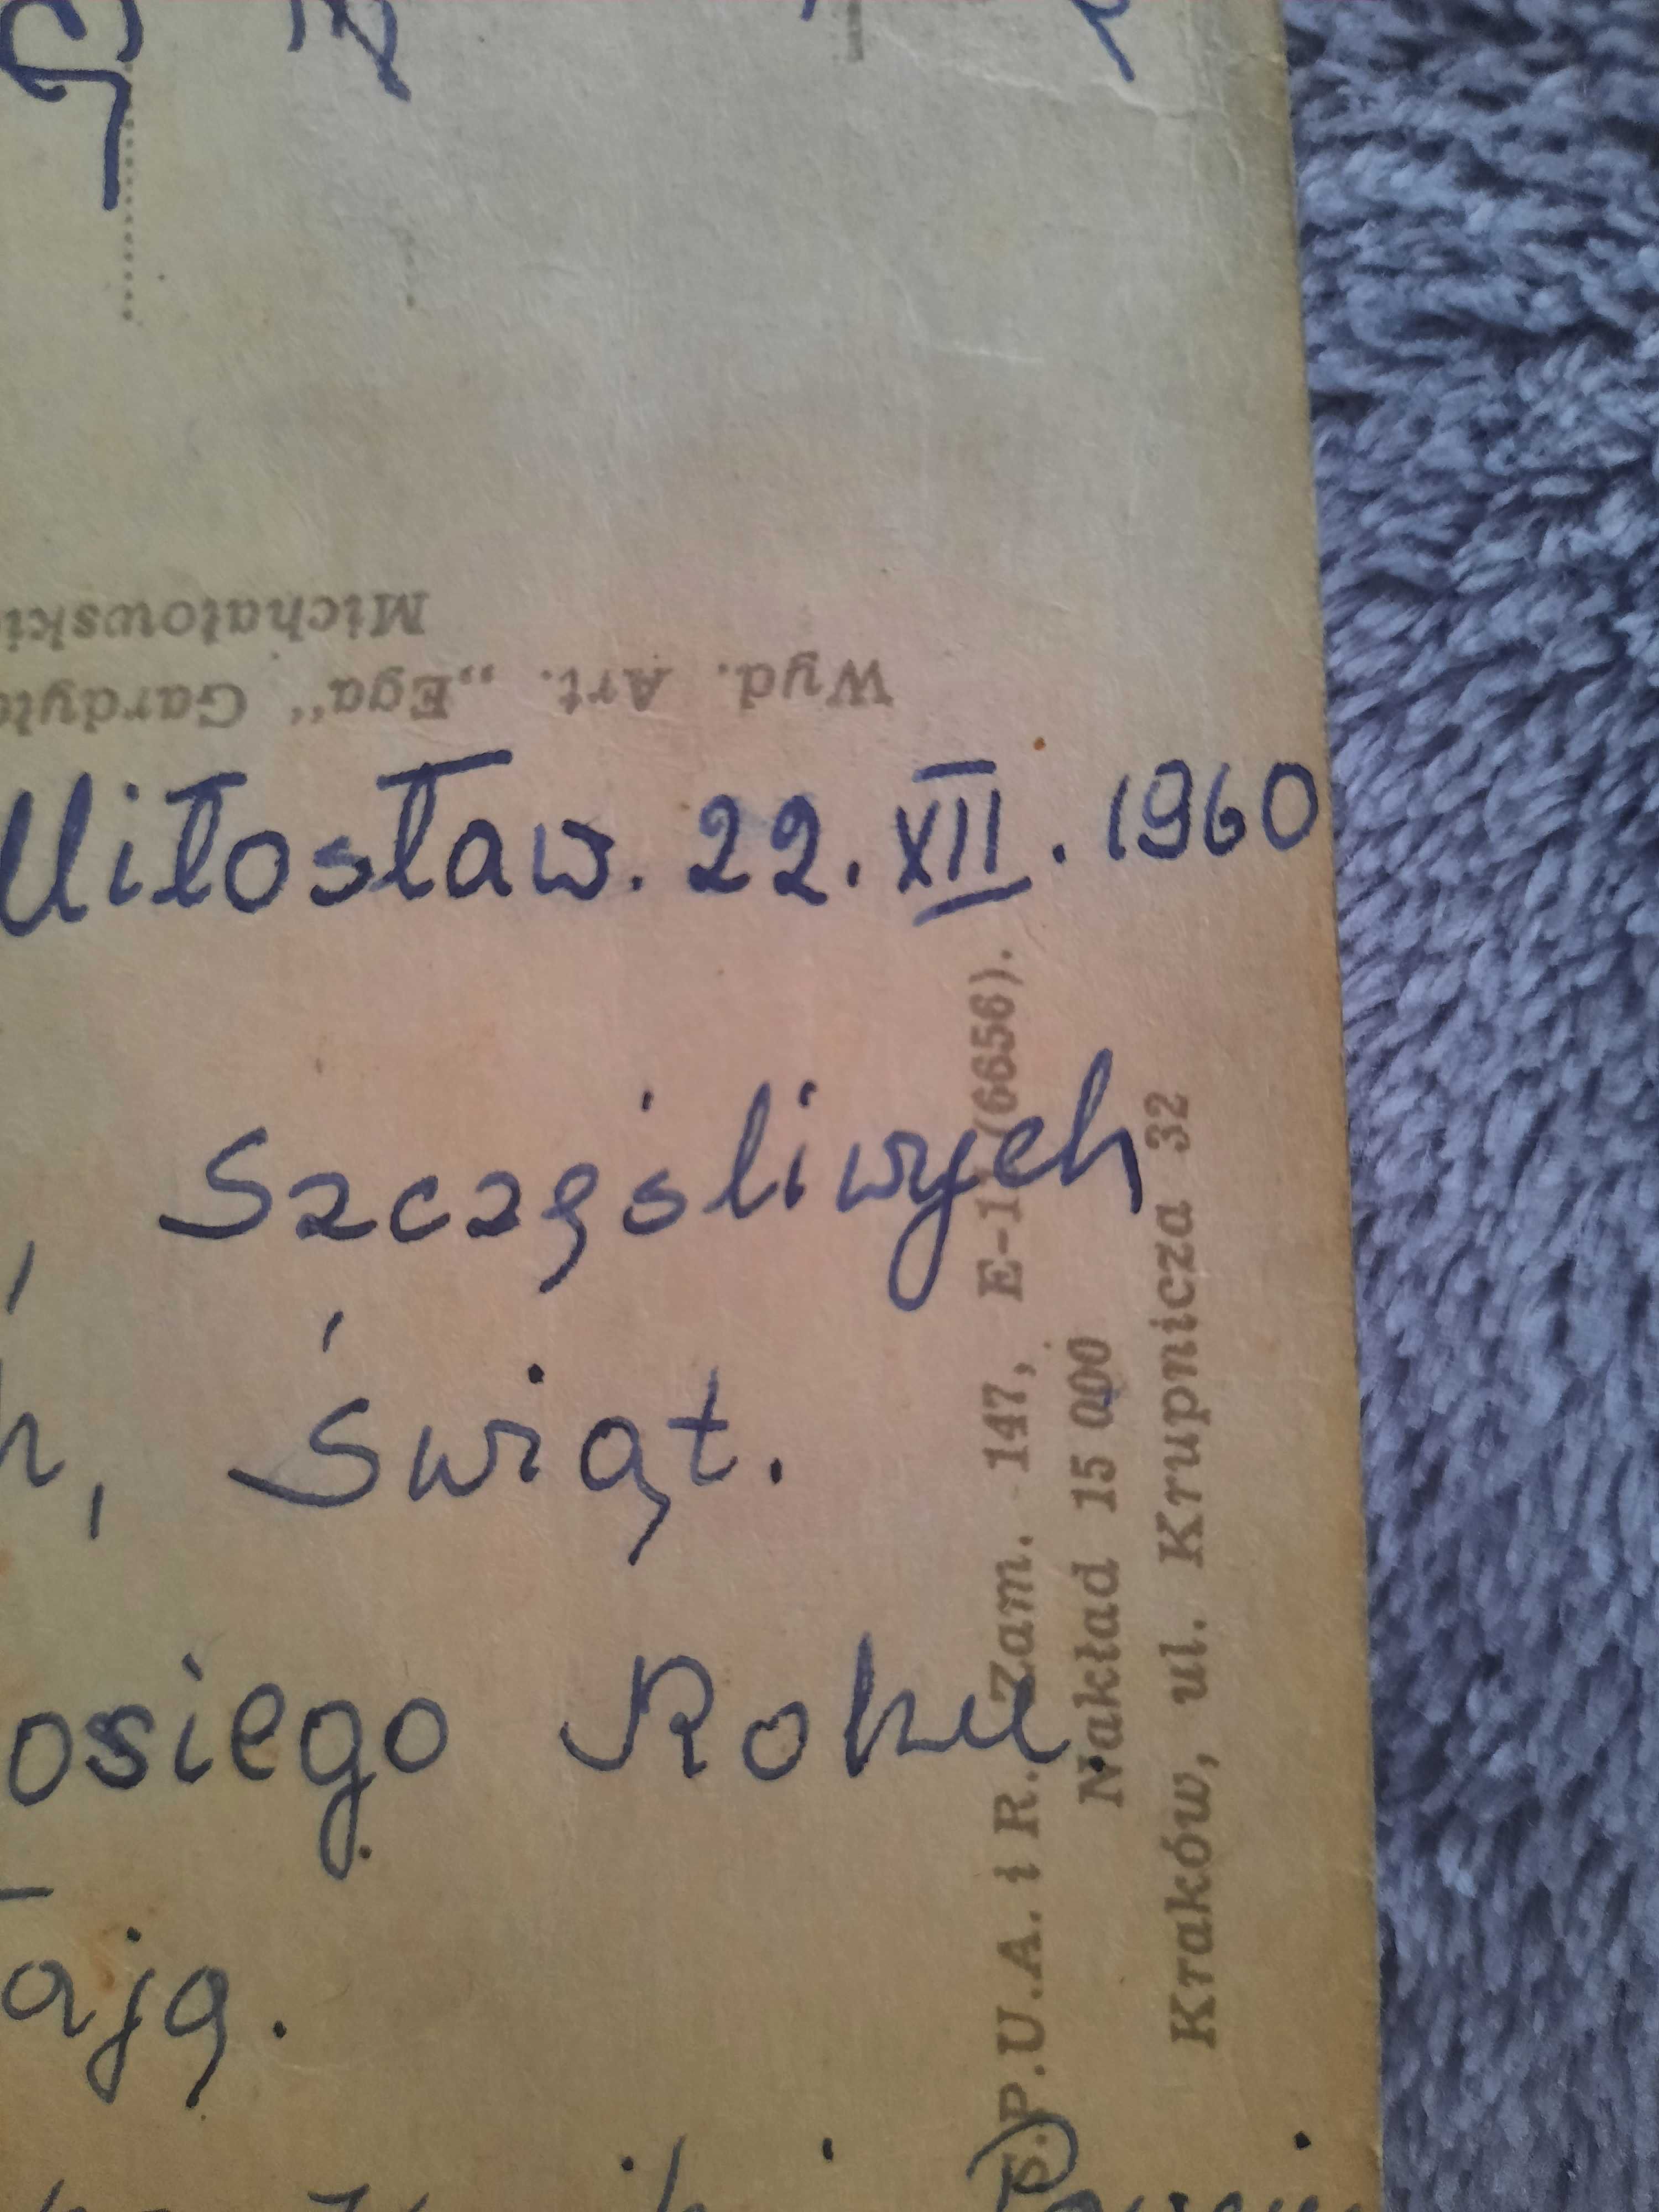 Michałowski
Wyd. Art. „Ega" Gardyto
Miłosław. 22. XII. 1960
, Szczęśliwych
h, Świąt.
osiego Roku.
ają.
S.P.U.A. i R. Zam. 147, E-1 (6656).
Nakład 15 000
Kraków, ul. Krupnicza 32